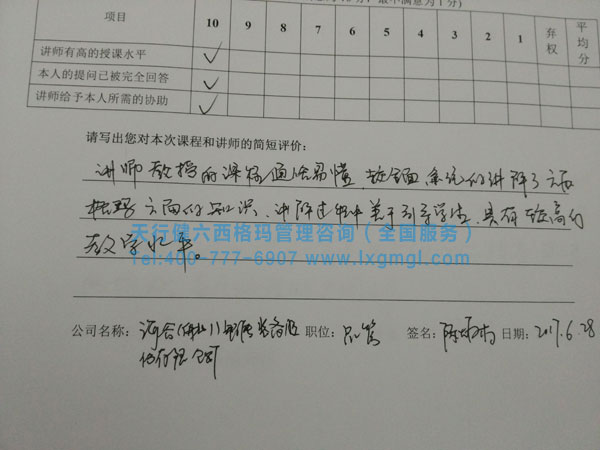 最不满意为1分)
项目 10 9 8 7 6 5 4 3 2 1 弃权 平均分
讲师有高的授课水平 ✓
本人的提问已被完全回答 ✓
讲师给予本人所需的协助 ✓
请写出您对本次课程和讲师的简短评价:
讲师教授的课程通俗易懂,较全面、系统的讲解了六西
格玛方面的知识,讲解过程中善于引导学生,具有较高的
教学水平。
天行健六西格玛管理咨询(全国服务)
Tel:400-777-6907 www.lxgmgl.com
公司名称: 职位:品管 签名: 日期:2017.6.28
份有限公司